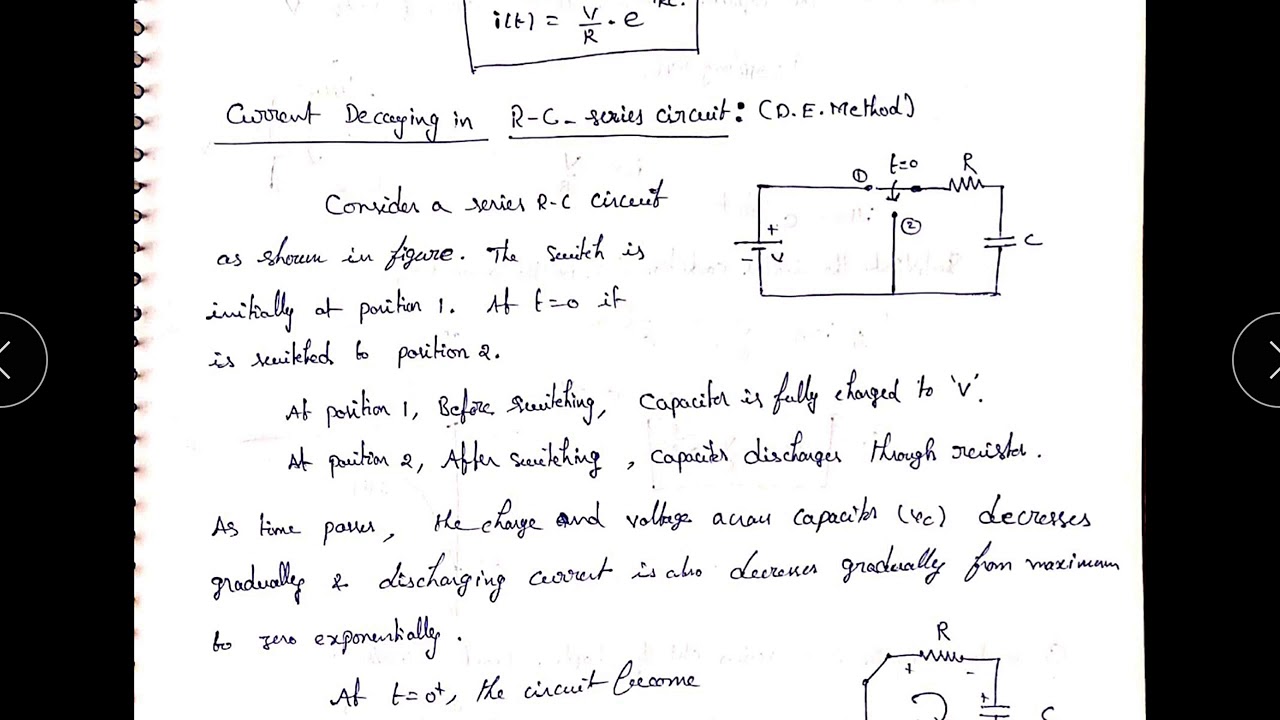 i(t) = V/R . e
Current Decaying in R-C-series circuit: (D.E. Method)
t=0
R
①
②
+
- V
C
Consider a series R-C circuit
as shown in figure. The switch is
initially at position 1. At t=0 it
is switched to position 2.
At position 1, Before switching, Capacitor is fully charged to 'V'.
At position 2, After switching, Capacitor discharges through resistor.
As time passes, the charge and voltage across capacitor (vc) decreses
gradually & discharging current is also decreses gradually from maximum
to zero exponentially.
At t=0+, the circuit become
R
+ -
+
C